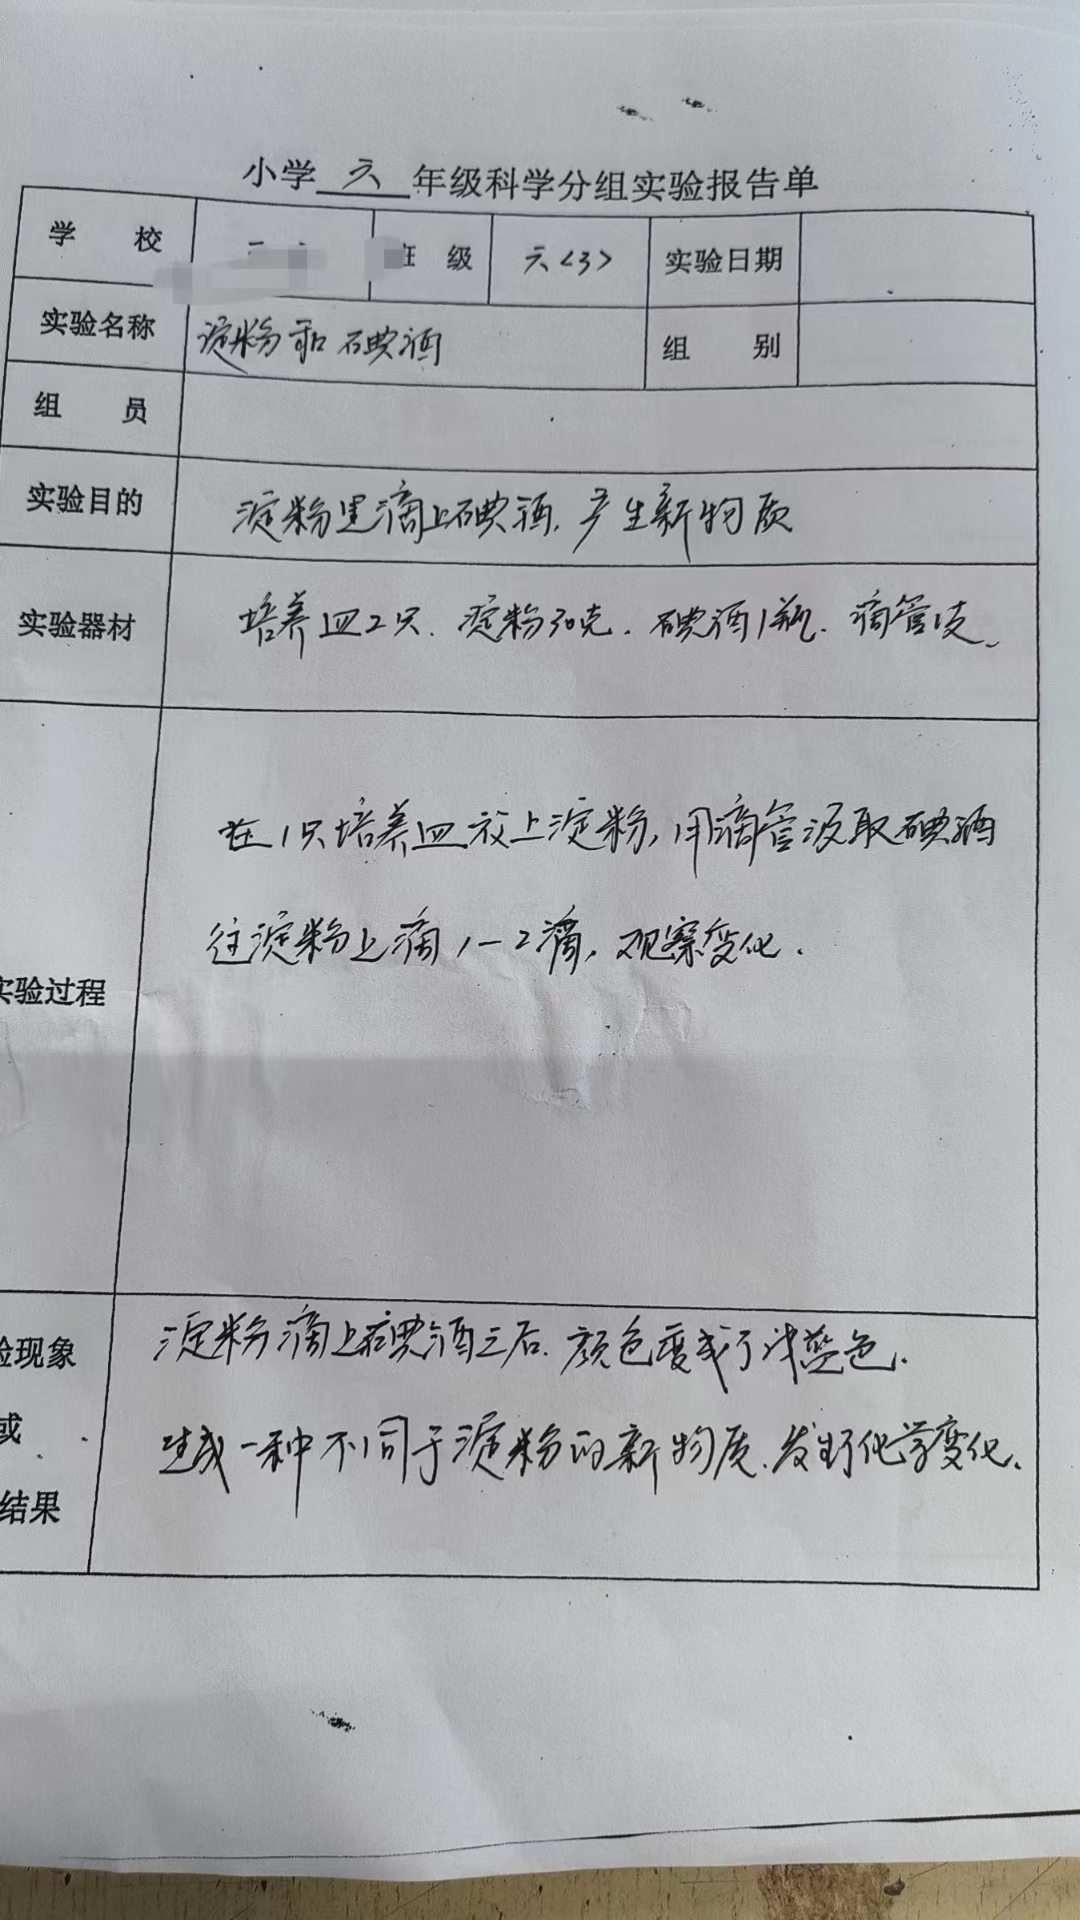 小学 六 年级科学分组实验报告单
学 校 班 级 六<3> 实验日期
实验名称 淀粉和碘酒 组 别
组 员
实验目的 淀粉里滴上碘酒,产生新物质
实验器材 培养皿2只.淀粉30克.碘酒1瓶.滴管1支、
在1只培养皿放上淀粉,用滴管汲取碘酒
往淀粉上滴1一2滴,观察变化.
实验过程
淀粉滴上碘酒之后.颜色变成了浅蓝色.
验现象
或
生成一种不同于淀粉的新物质.发生了化学变化.
结果